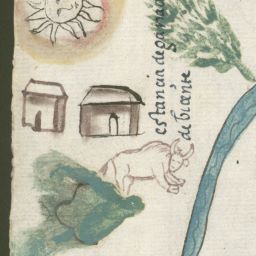 estancia de ganado
de biçente